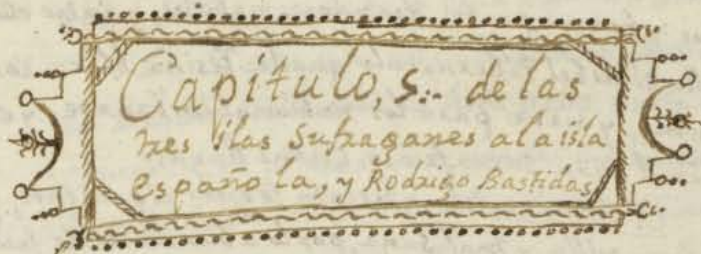 Capítulo, 5:. de las
tres ilas Sufraganes a la isla
española, y Rodrigo Bastidas